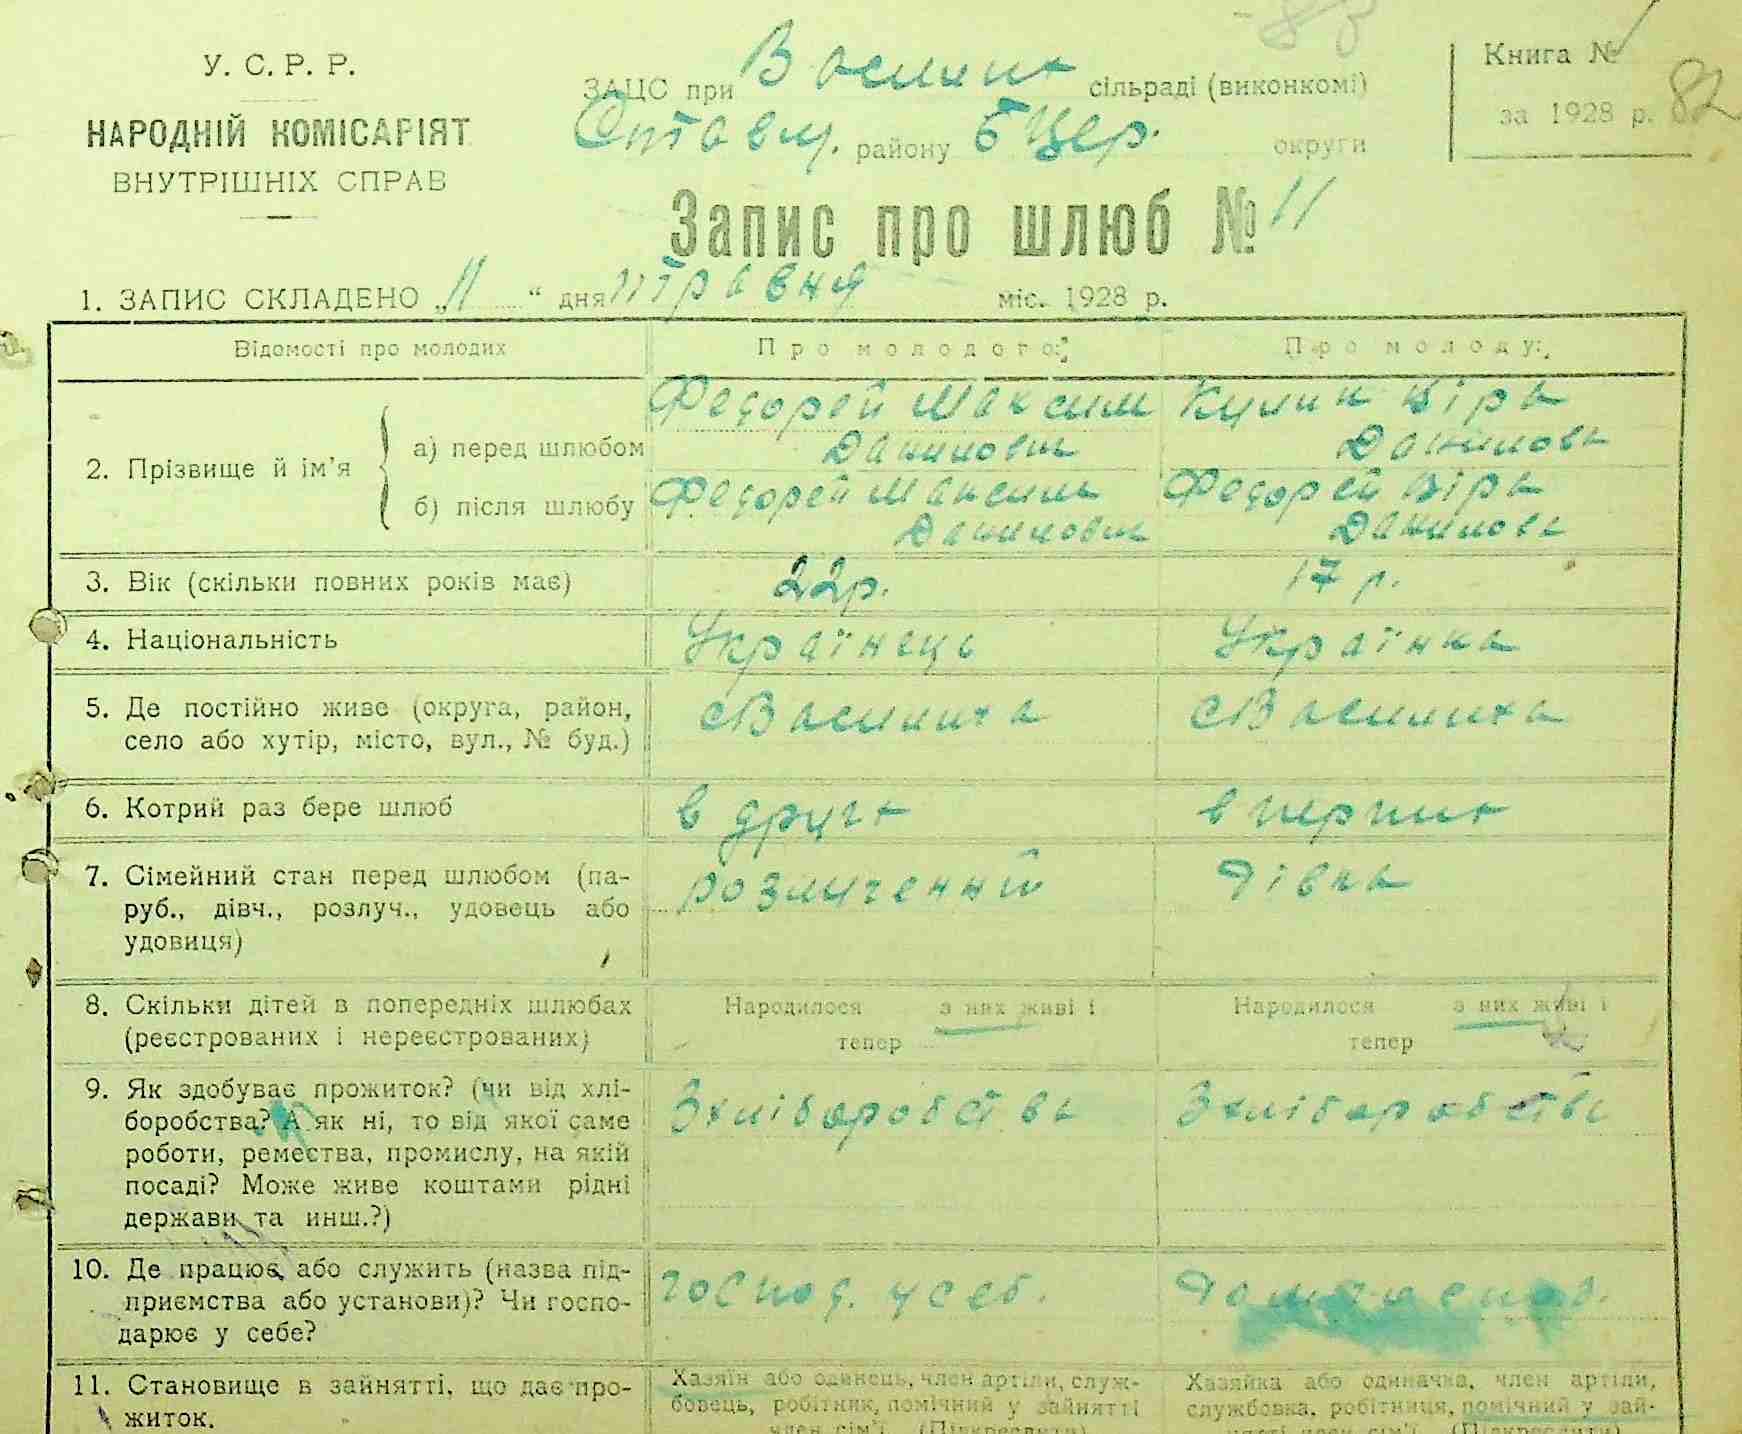 У. С. Р. Р.
НАРОДНІЙ КОМІСАРІЯТ
ВНУТРІШНІХ СПРАВ
ЗАЦС при Василих сільраді (виконкомі)
Ставищ. району Б Цер. округи
Книга №
за 1928 р. 82
Запис про шлюб № 11
1. ЗАПИС СКЛАДЕНО „11“ дня травня міс. 1928 р.
Відомості про молодих
Про молодого:
Про молоду:
2. Прізвище й ім’я
а) перед шлюбом
Федорей Максим
Данилович
Віра
Данилов
б) після шлюбу
Федорей Максим
Данилович
Федорей Віра
Данилов
3. Вік (скільки повних років має)
22р.
17 р.
4. Національність
Українець
Українка
5. Де постійно живе (округа, район,
село або хутір, місто, вул., № буд.)
с Василиха
с Василиха
6. Котрий раз бере шлюб
в друге
в перших
7. Сімейний стан перед шлюбом (па-
руб., дівч., розлуч., удовець або
удовиця)
розлученний
дівка
8. Скільки дітей в попередніх шлюбах
(реєстрованих і нереєстрованих)
Народилося з них живі і
тепер
Народилося з них живі і
тепер
9. Як здобуває прожиток? (чи від хлі-
боробства? А як ні, то від якої саме
роботи, ремества, промислу, на якій
посаді? Може живе коштами рідні
держави та инш.?)
З хліборобства
З хліборобства
10. Де працює або служить (назва під-
приємства або установи)? Чи госпо-
дарює у себе?
господ. у себ.
11. Становище в зайнятті, що дає про-
житок.
Хазяїн або одинець, член артіли, служ-
бовець, робітник, помічний у зайнятті
член сім’ї. (Підкреслити)
Хазяйка або одиначка, член артіли,
службовка, робітниця, помічний у зай-
нятті член сім’ї. (Підкреслити)